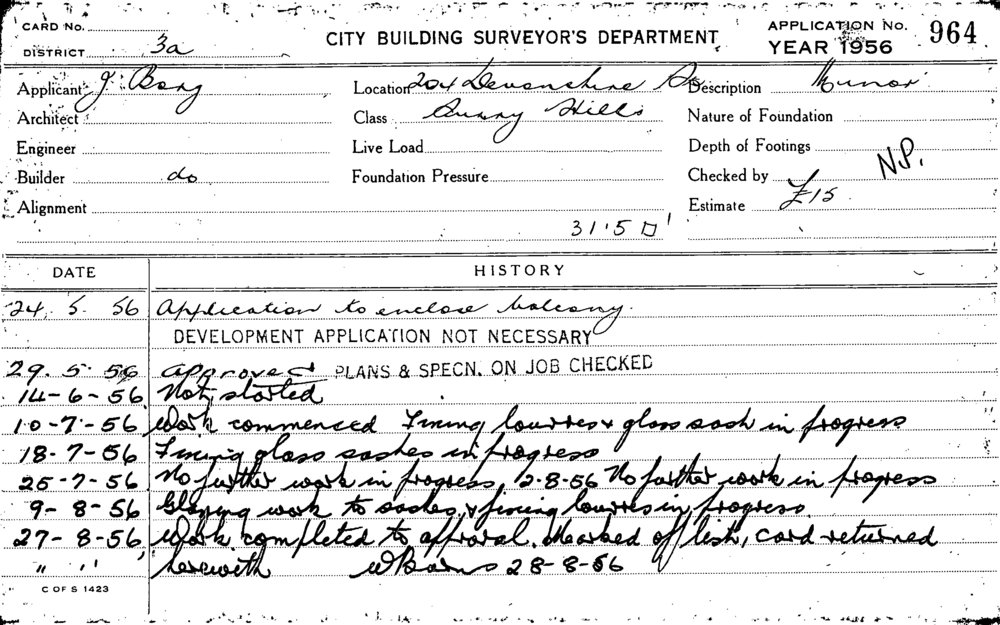 CARD No.
DISTRICT 3a
CITY BUILDING SURVEYOR'S DEPARTMENT
APPLICATION No. 964
YEAR 1956
Applicant J. Borg
Location 204 Devonshire St
Description Minor
Architect
Class Surry Hills
Nature of Foundation
Engineer
Live Load
Depth of Footings
Builder do
Foundation Pressure
Checked by N.P.
Alignment
Estimate £15
31.5 □'
DATE HISTORY
24. 5. 56 Application to enclose balcony.
DEVELOPMENT APPLICATION NOT NECESSARY
29. 5. 56 approved PLANS & SPECN. ON JOB CHECKED
14-6-56 Not started
10-7-56 Work commenced Fixing louvres & glass sash in progress
18-7-56 Fixing glass sashes in progress
25-7-56 No further work in progress 2-8-56 No further work in progress
9-8-56 Glazing work to sashes & fixing louvres in progress
27-8-56 Work completed to approval. Marked off list, card returned
" " herewith 28-8-56
C OF S 1423